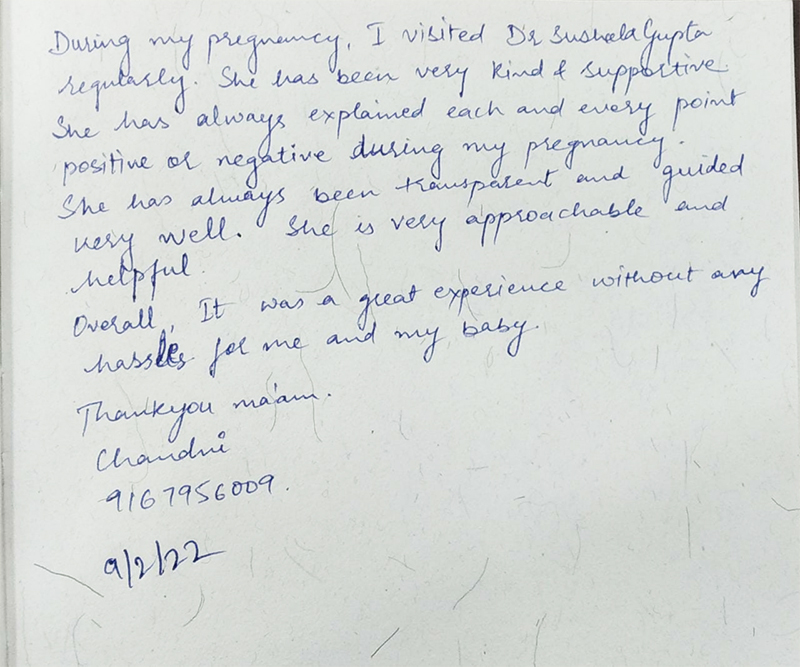 During my pregnancy, I visited Dr Susheela Gupta
regularly. She has been very kind & supportive
She has always explained each and every point
positive or negative during my pregnancy.
She has always been transparent and guided
very well. She is very approachable and
helpful.
Overall, It was a great experience without any
hassles for me and my baby.
Thankyou ma'am.
Chandni
9167956009.
9/2/22